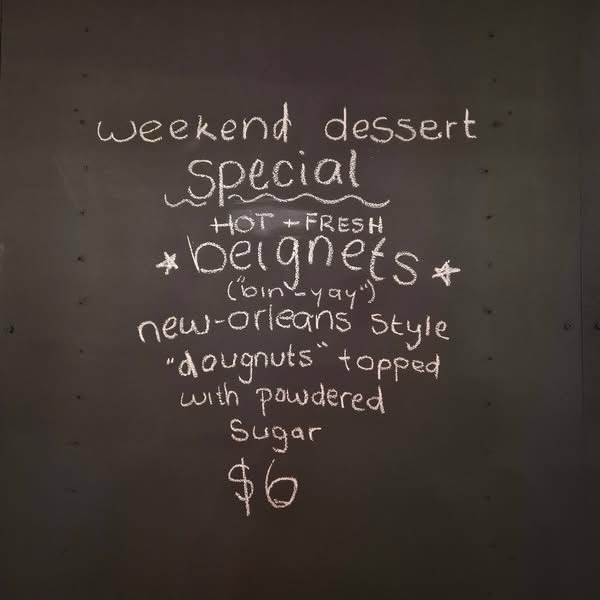 weekend dessert
special
HOT + FRESH
* beignets *
("bin-yay")
new-orleans style
"dougnuts" topped
with powdered
sugar
$6